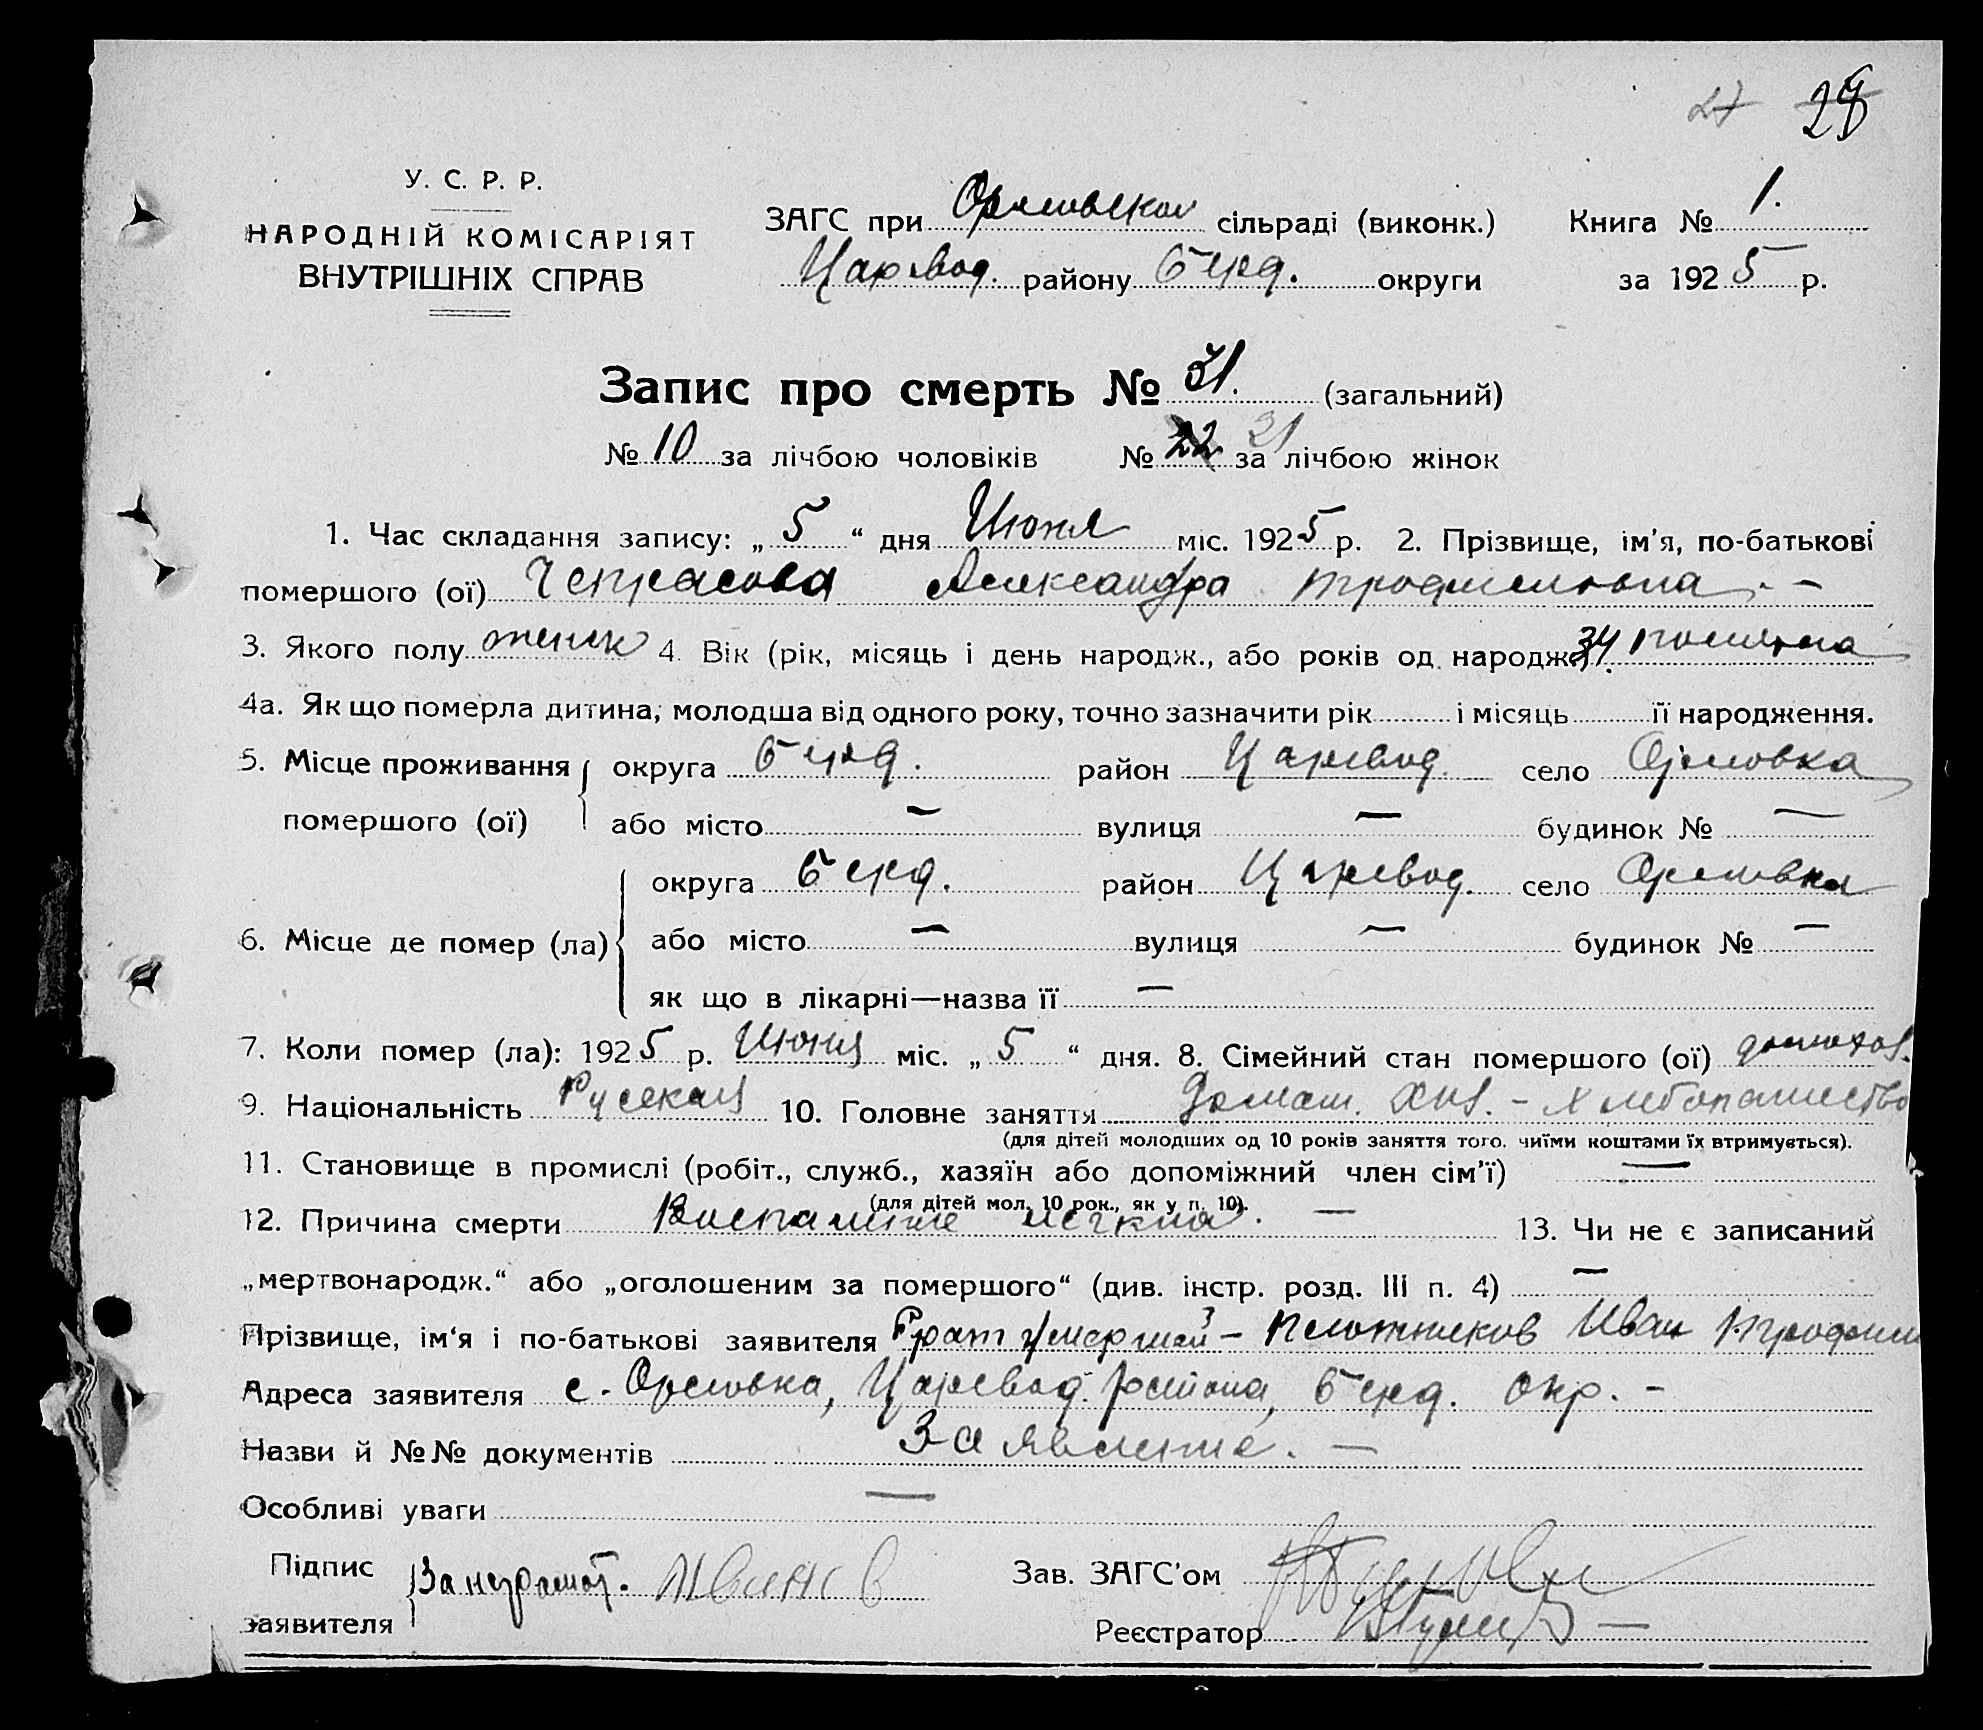 27 28
У. С. Р. Р.
НАРОДНІЙ КОМІСАРІЯТ
ВНУТРІШНІХ СПРАВ
ЗАГС при Орловском сільраді (виконк.) Книга № 1.
Царевод. району Берд. округи за 1925 р.
Запис про смерть № 31. (загальний)
№ 10 за лічбою чоловіків № 22 21 за лічбою жінок
1. Час складання запису: „5“ дня Июня міс. 1925 р. 2. Прізвище, ім'я, по-батькові
помершого (ої) Александра Трофимовна. —
3. Якого полу женск 4. Вік (рік, місяць і день народж., або років од народж.) 34.
4а. Як що померла дитина, молодша від одного року, точно зазначити рік і місяць її народження.
5. Місце проживання округа Берд. район Царевод. село Орловка
помершого (ої) або місто — вулиця — будинок № —
округа Берд. район Царевод. село Орловка
6. Місце де помер (ла) або місто — вулиця — будинок № —
як що в лікарні—назва її —
7. Коли помер (ла): 1925 р. Июня міс. „5“ дня. 8. Сімейний стан помершого (ої)
9. Національність Русская 10. Головне заняття Домаш. хоз. - Хлебопашество
(для дітей молодших од 10 років заняття того, чиїми коштами їх втримується).
11. Становище в промислі (робіт., служб., хазяїн або допоміжний член сім'ї) —
(для дітей мол. 10 рок., як у п. 10).
12. Причина смерти Воспаление легких. — 13. Чи не є записаний
„мертвонародж.“ або „оголошеним за помершого“ (див. інстр. розд. III п. 4) —
Прізвище, ім'я і по-батькові заявителя Брат умершей - Плотников Иван Трофим
Адреса заявителя с. Орловка, Царевод. района, Берд. окр. -
Назви й №№ документів Заявление. —
Особливі уваги —
Підпис За неграмот.
заявителя
Зав. ЗАГС'ом
Реєстратор